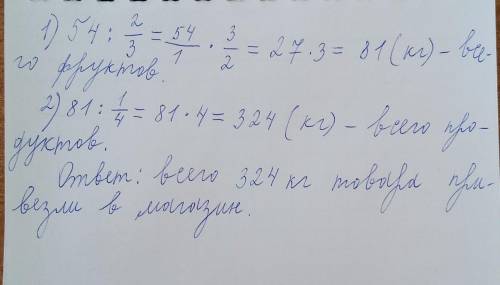 1) 54 : 2/3 = 54/1 · 3/2 = 27 · 3 = 81 (кг) - все-
го фруктов.
2) 81 : 1/4 = 81 · 4 = 324 (кг) - всего про-
дуктов.
Ответ: всего 324 кг товара при-
везли в магазин.